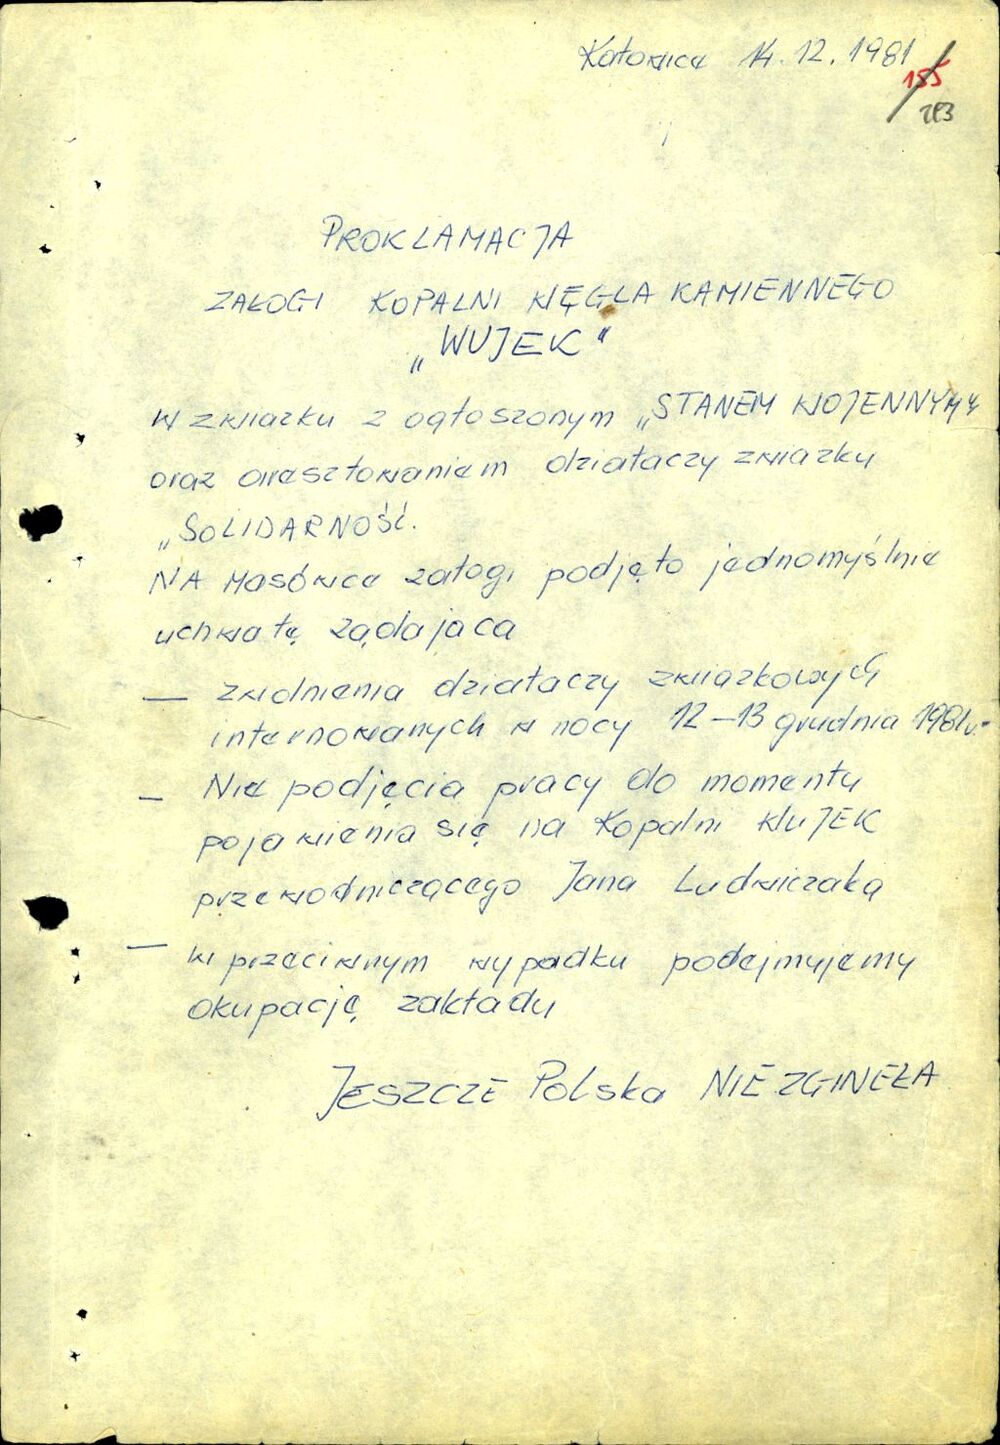 Katowice 14.12.1981
155
213
PROKLAMACJA
ZAŁOGI KOPALNI WĘGLA KAMIENNEGO
„WUJEK"
W związku z ogłoszonym „STANEM WOJENNYM"
oraz aresztowaniem działaczy związku
„SOLIDARNOŚĆ.
NA Masówce załogi podjęto jednomyślnie
uchwałę żądająca
— zwolnienia działaczy związkowych
internowanych w nocy 12–13 grudnia 1981r.
– Nie podjęcia pracy do momentu
pojawienia się na Kopalni WUJEK
przewodniczącego Jana Ludwiczaka
— w przeciwnym wypadku podejmujemy
okupację zakładu
JESZCZE Polska NIE ZGINEŁA